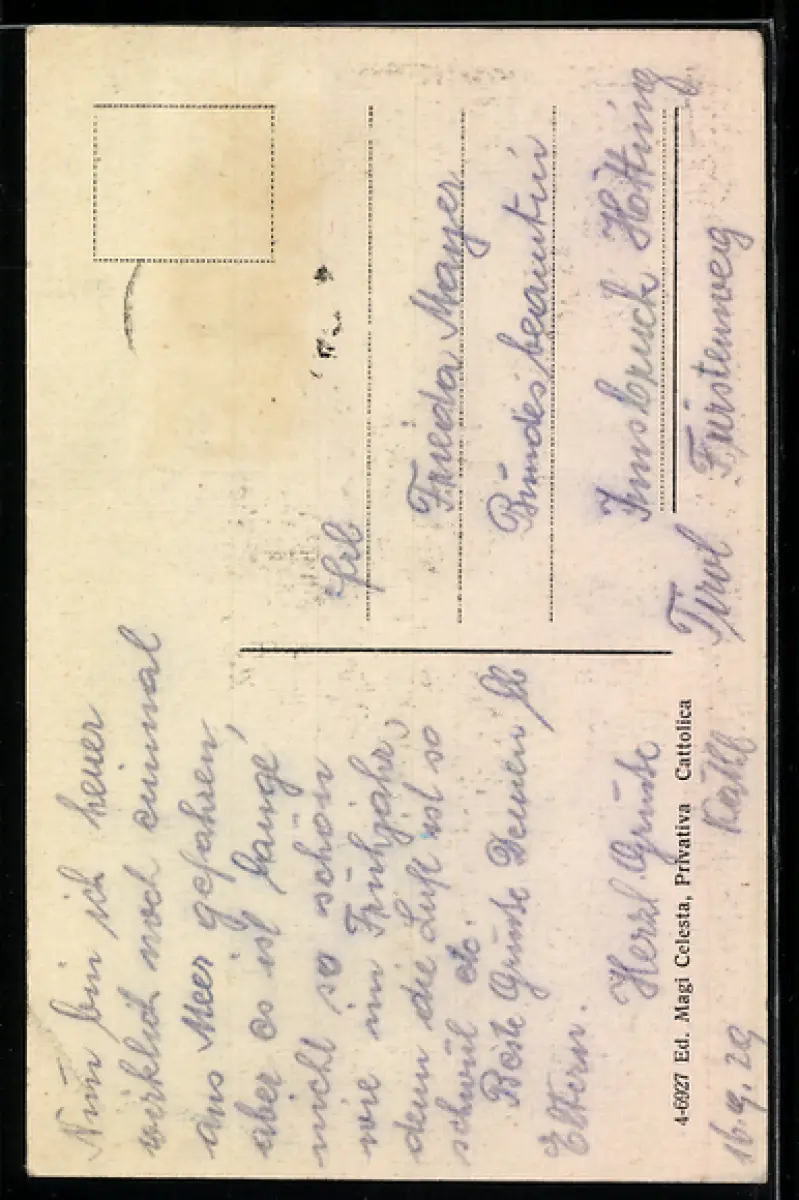 Nun bin ich heuer
wirklich noch einmal
ans Meer gefahren,
aber es ist lange
nicht so schön
wie im Frühjahr,
denn die Luft ist so
schwül etc.
Beste Grüße Deinen lb
Eltern.
Herzl. Grüße
16.9.29
4-6927 Ed. Magi Celesta, Privativa Cattolica
Frl
Frieda Mayer
Bundesbeamtin
Innsbruck Hötting
Tirol Fürstenweg